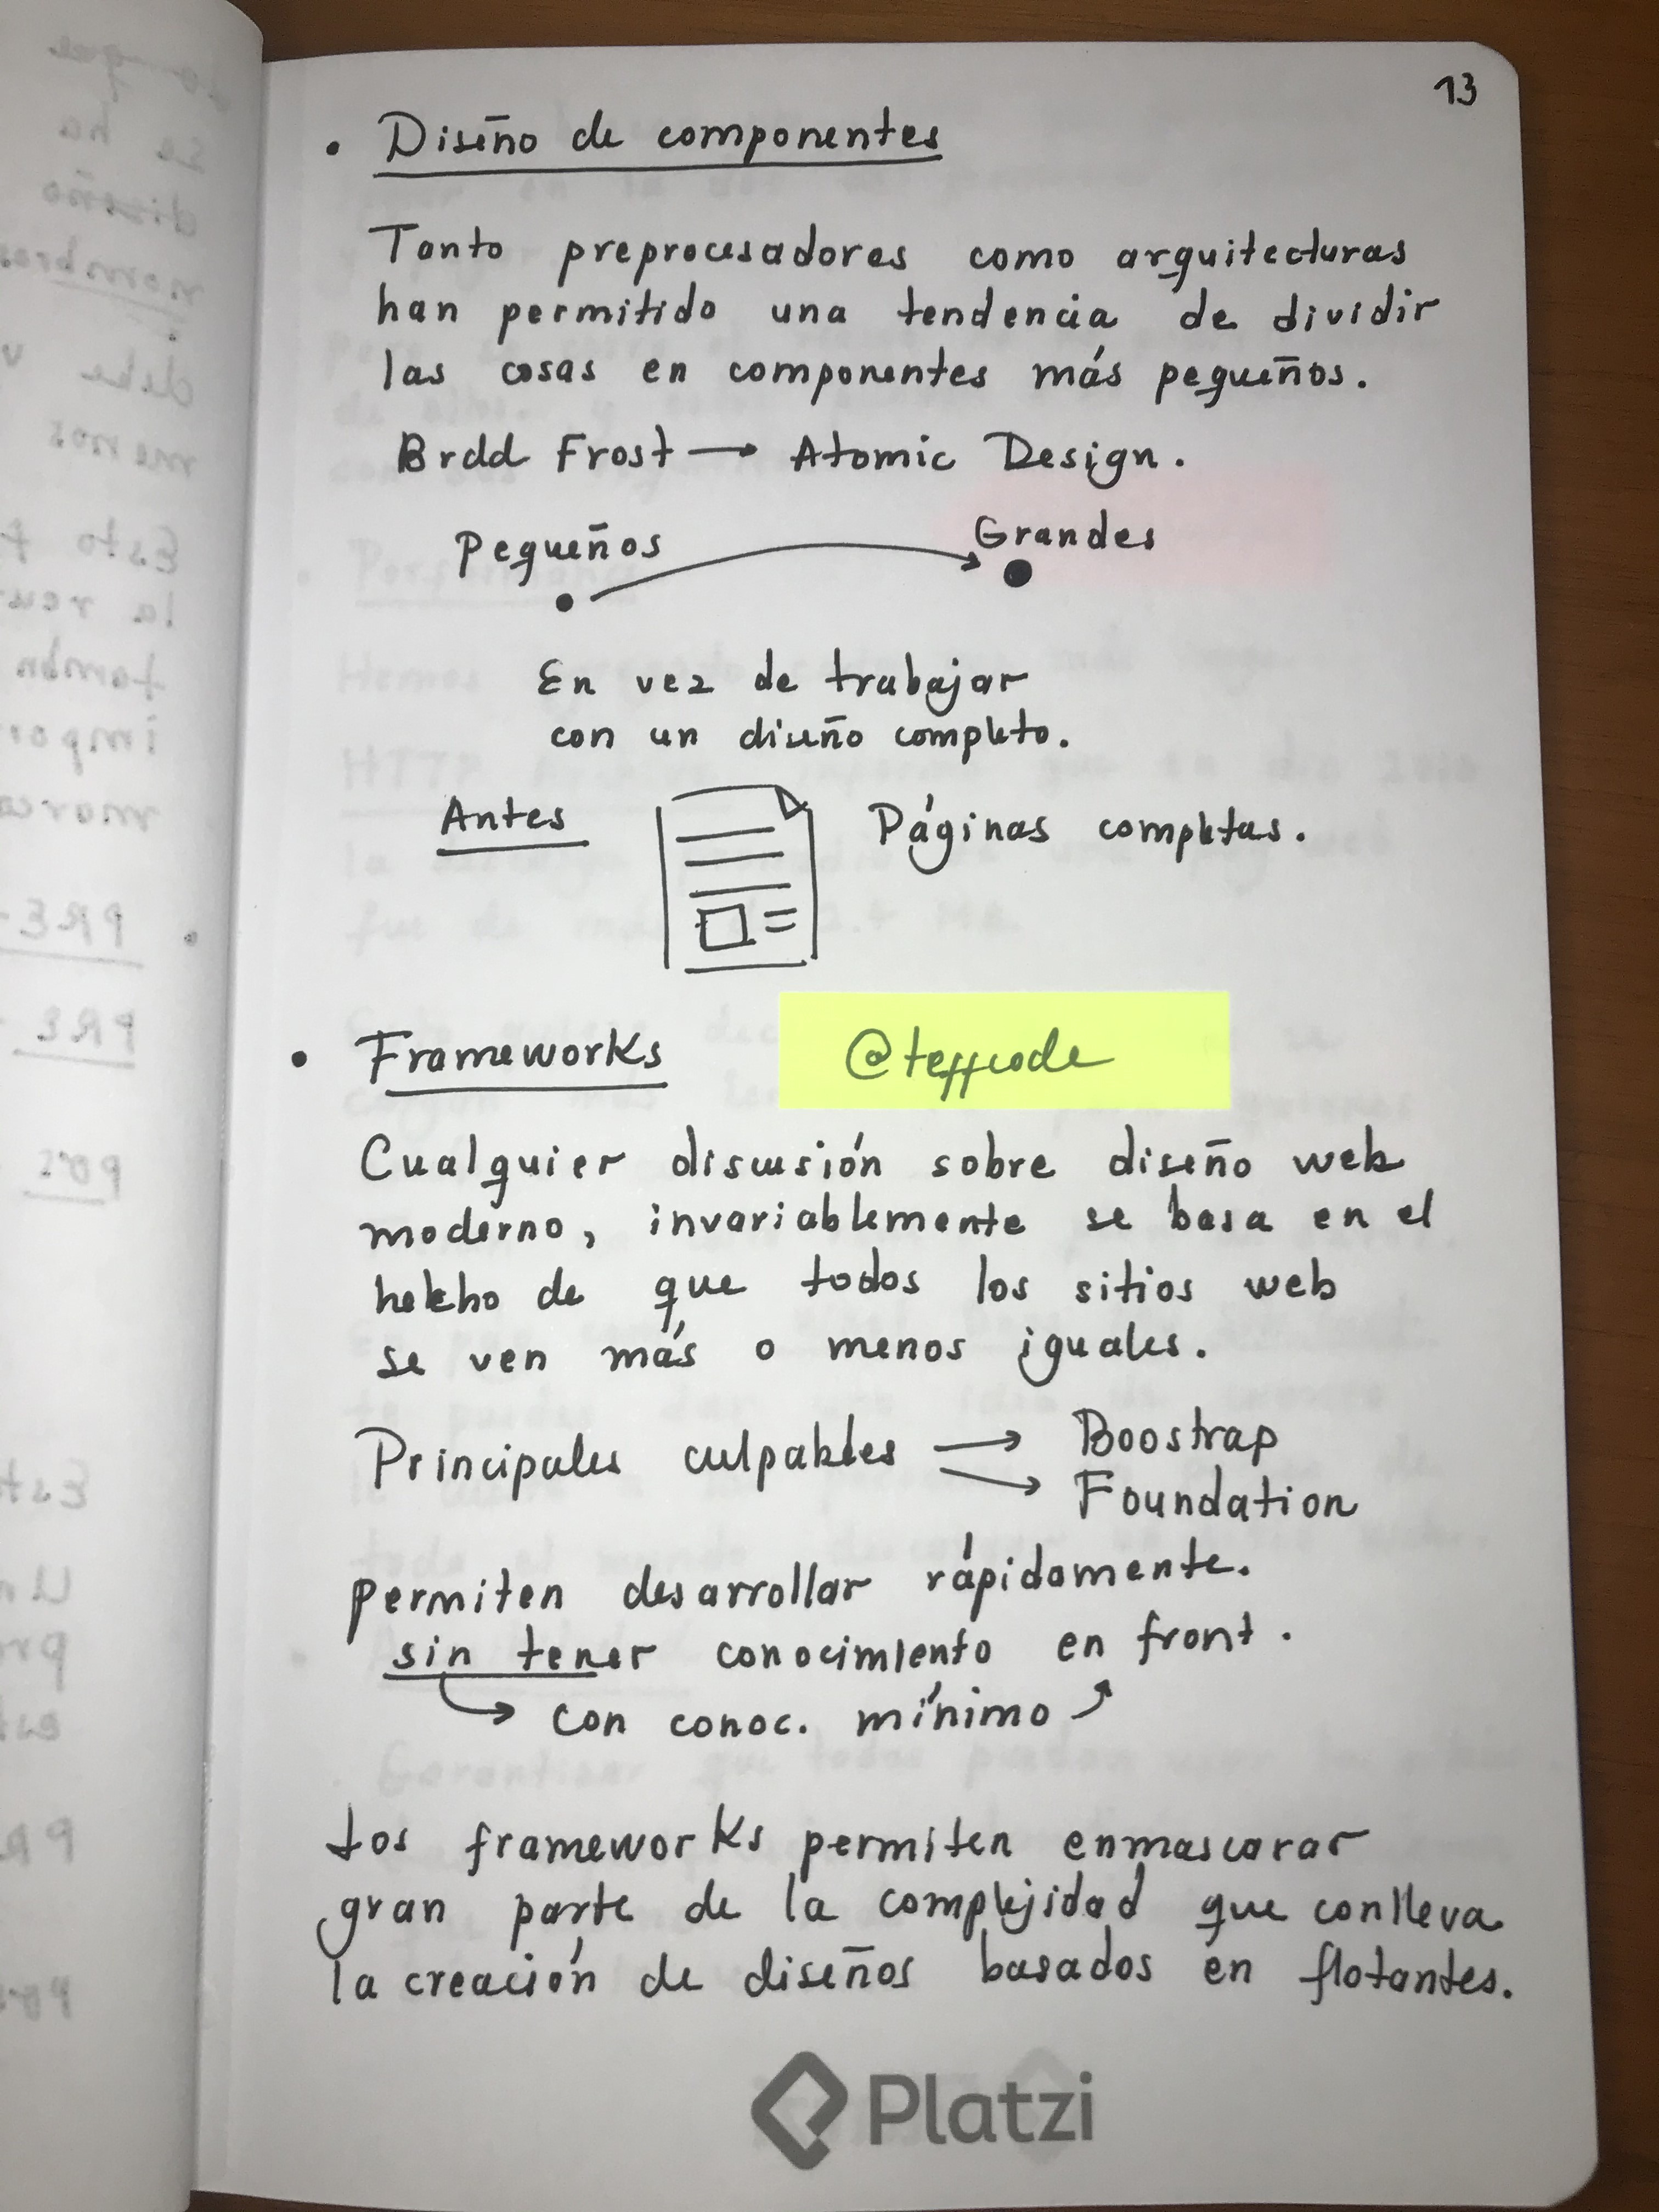 13
• Diseño de componentes
Tanto preprocesadores como arquitecturas
han permitido una tendencia de dividir
las cosas en componentes más pequeños.
Brad Frost → Atomic Design.
Pequeños Grandes
En vez de trabajar
con un diseño completo.
Antes Páginas completas.
• Frameworks @teffcode
Cualquier discusión sobre diseño web
moderno, invariablemente se basa en el
hecho de que todos los sitios web
se ven más o menos iguales.
Principales culpables → Boostrap
→ Foundation
permiten desarrollar rápidamente.
sin tener conocimiento en front.
→ con conoc. mínimo
Los frameworks permiten enmascarar
gran parte de la complejidad que conlleva
la creación de diseños basados en flotantes.
Platzi